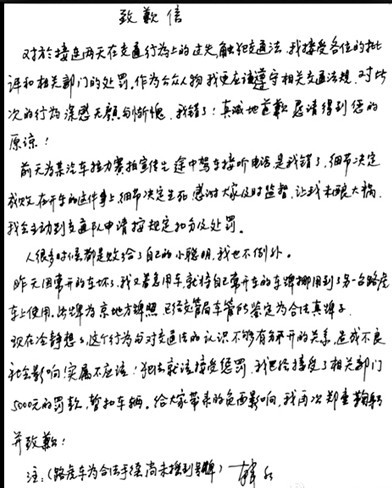 致歉信
对于接连两天在交通行为上的过失,触犯交通法,我接受各位的批
评和相关部门的处罚。作为公众人物我更应该遵守相关交通法规,对此
次的行为深感无颜与惭愧,我错了!真诚地道歉恳请得到您的
原谅!
前天为某汽车接力赛拍宣传片途中驾车接听电话是我错了,细节决定
成败,在开车的这件事上细节决定生死,感谢大家及时监督,让我未酿大祸,
我会主动到交通队申请按规定扣分及处罚。
人很多时候都是败给了自己的小聪明,我也不例外。
昨天因常开的车坏了,我又着急用车就将自己常开车的车牌挪用到了另一台路虎
车上使用。此牌为京地方牌照,已经交管局车管所鉴定为合法真牌子。
现在冷静想想,这个行为与对交通法的认识不够有分不开的关系,造成不良
社会影响!实属不应该!犯法就该接受惩罚,我已经接受了相关部门
5000元的罚款,暂扣车辆。给大家带来的负面影响,我再次郑重鞠躬
并致歉!
注:(路虎车为合法手续尚未换到号牌)